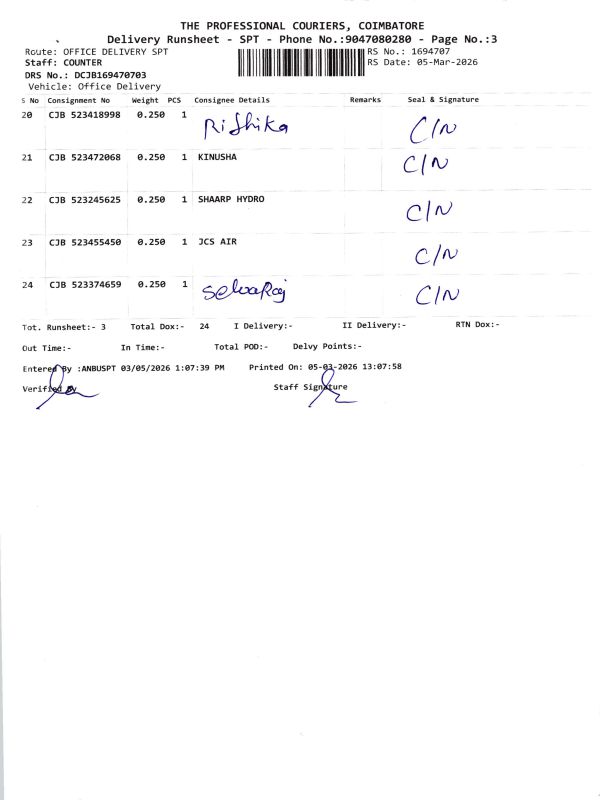 THE PROFESSIONAL COURIERS, COIMBATORE
Delivery Runsheet - SPT - Phone No.:9047080280 - Page No.:3
Route: OFFICE DELIVERY SPT RS No.: 1694707
Staff: COUNTER RS Date: 05-Mar-2026
DRS No.: DCJB169470703
Vehicle: Office Delivery
S No Consignment No Weight PCS Consignee Details Remarks Seal & Signature
20 CJB 523418998 0.250 1 Rishika C/N
21 CJB 523472068 0.250 1 KINUSHA C/N
22 CJB 523245625 0.250 1 SHAARP HYDRO C/N
23 CJB 523455450 0.250 1 JCS AIR C/N
24 CJB 523374659 0.250 1 SelvaRaj C/N
Tot. Runsheet:- 3 Total Dox:- 24 I Delivery:- II Delivery:- RTN Dox:-
Out Time:- In Time:- Total POD:- Delvy Points:-
Entered By :ANBUSPT 03/05/2026 1:07:39 PM Printed On: 05-03-2026 13:07:58
Verified By Staff Signature